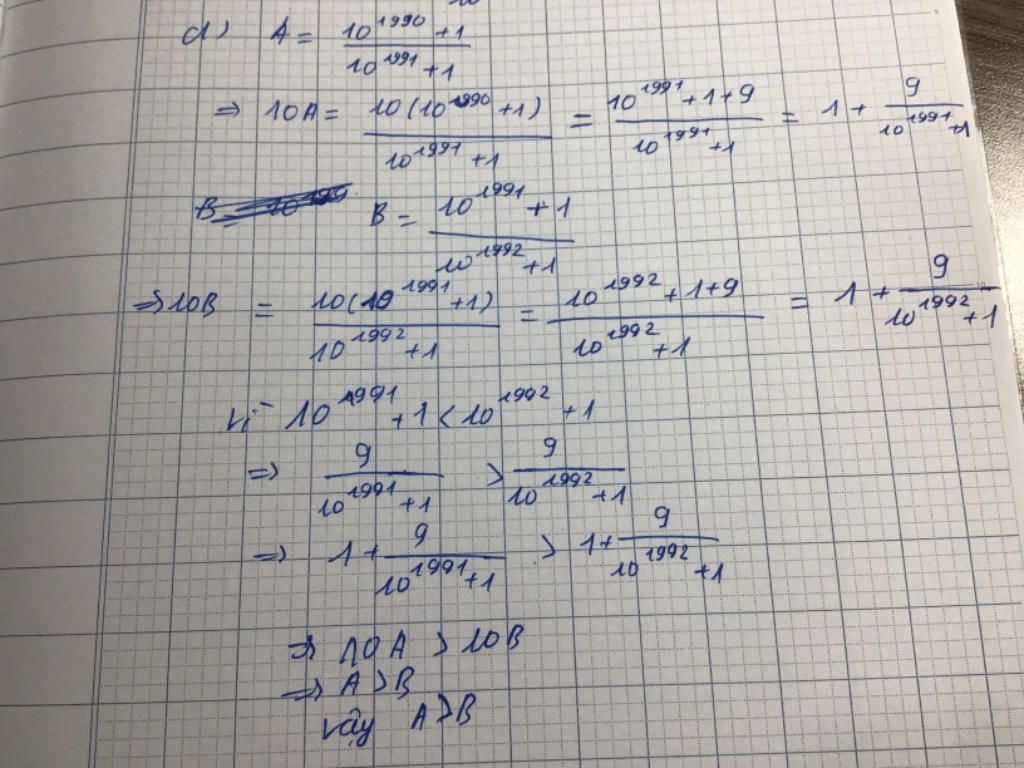 d) A = \frac{10^{1990}+1}{10^{1991}+1}
⇒ 10A = \frac{10(10^{1990}+1)}{10^{1991}+1} = \frac{10^{1991}+1+9}{10^{1991}+1} = 1 + \frac{9}{10^{1991}+1}
B = \frac{10^{1991}+1}{10^{1992}+1}
⇒ 10B = \frac{10(10^{1991}+1)}{10^{1992}+1} = \frac{10^{1992}+1+9}{10^{1992}+1} = 1 + \frac{9}{10^{1992}+1}
Vì 10^{1991}+1 < 10^{1992}+1
⇒ \frac{9}{10^{1991}+1} > \frac{9}{10^{1992}+1}
⇒ 1 + \frac{9}{10^{1991}+1} > 1 + \frac{9}{10^{1992}+1}
⇒ 10A > 10B
⇒ A > B
vậy A > B